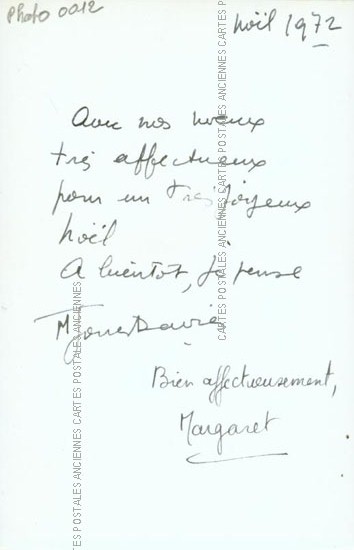 Photo 0012
Noël 1972
Avec nos voeux
très affectueux
pour un très joyeux
Noël
A bientôt, je pense
M Jones Davies
Bien affectueusement,
Margaret
CARTES POSTALES ANCIENNES CARTES POSTALES ANCIENNES
CARTES POSTALES ANCIENNES CARTES POSTALES ANCIENNES CARTES POSTALES